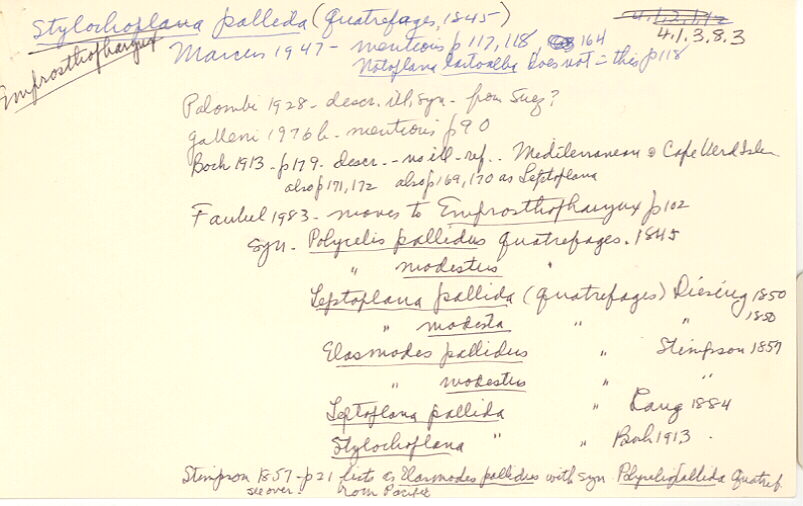 Stylochoplana pallida (Quatrefages, 1845)
4.1.2.1.2
4.1.3.8.3
Emprosthopharynx
Marcus 1947 - mentions p 117, 118 164
Notoplana lactoalba does not = this p 118
Palombi 1928 - descr. ill, syn. - from Suez?
Galleni 1976b - mentions p 90
Bock 1913 - p 179 - descr. - - no ill - ref. . Mediterranean & Cape Verd Isles
also p 171, 172 also p 169, 170 as Leptoplana
Faubel 1983 - moves to Emprosthopharynx p 102
syn. - Polycelis pallidus Quatrefages. 1845
" modestus "
Leptoplana pallida (Quatrefages) Diesing 1850
" modesta " " 1850
Elasmodes pallidus " Stimpson 1857
" modestus " "
Leptoplana pallida " Lang 1884
Stylochoplana " " Bock 1913 .
Stimpson 1857 - p 21 lists as Elasmodes pallidus with syn Polycelis pallida Quatref.
see over. from Pacific